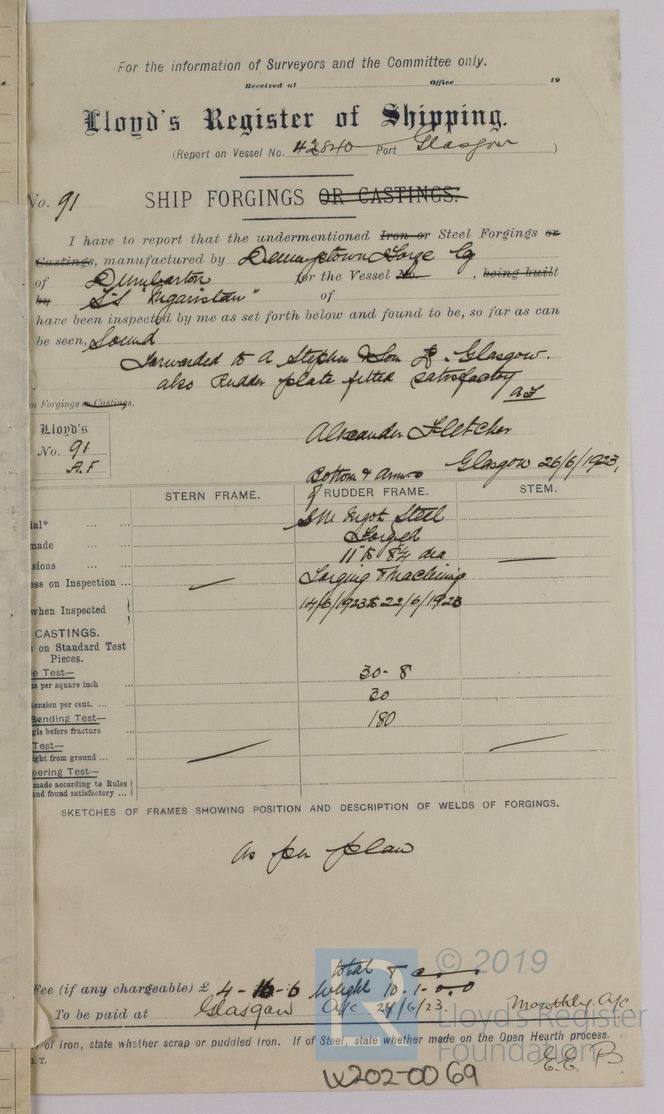 For the information of Surveyors and the Committee only.
Received at Office 19
Lloyd's Register of Shipping.
(Report on Vessel No. 42840 Port Glasgow )
No. 91
SHIP FORGINGS OR CASTINGS.
I have to report that the undermentioned Iron or Steel Forgings or
Castings, manufactured by Dennystown Forge Cy
of Dumbarton for the Vessel No. , being built
by S.S. of
have been inspected by me as set forth below and found to be, so far as can
be seen, Sound
Forwarded to A Stephen & Son Ld. Glasgow.
also Rudder plate fitted satisfactory
AF
n Forgings or Castings.
Lloyd's
No. 91
A.F
Alexander Fletcher
Glasgow 26/6/1923,
Bottom & Arms
of
STERN FRAME. RUDDER FRAME. STEM.
ial* ... ... S M Ingot Steel
made ... ... Forged
sions ... ... 11" to 8¾ dia
ess on Inspection ... Forging & Machining
when Inspected 14/6/1923 & 22/6/1923
CASTINGS.
s on Standard Test
Pieces.
e Test—
ns per square inch ... 30-8
tension per cent. ... ... 30
Bending Test—
gle before fracture 180
Test—
ight from ground ... ...
mering Test—
made according to Rules
and found satisfactory ...
SKETCHES OF FRAMES SHOWING POSITION AND DESCRIPTION OF WELDS OF FORGINGS.
As per plan
Total T c
Fee (if any chargeable) £ 4-16-6 Weight 10-1-0-0
To be paid at Glasgow A/c 24/6/23. Monthly A/c
of Iron, state whether scrap or puddled Iron. If of Steel, state whether made on the Open Hearth process.
. T.
E.E.B.
© 2019
Lloyd's Register
Foundation
W202-0069